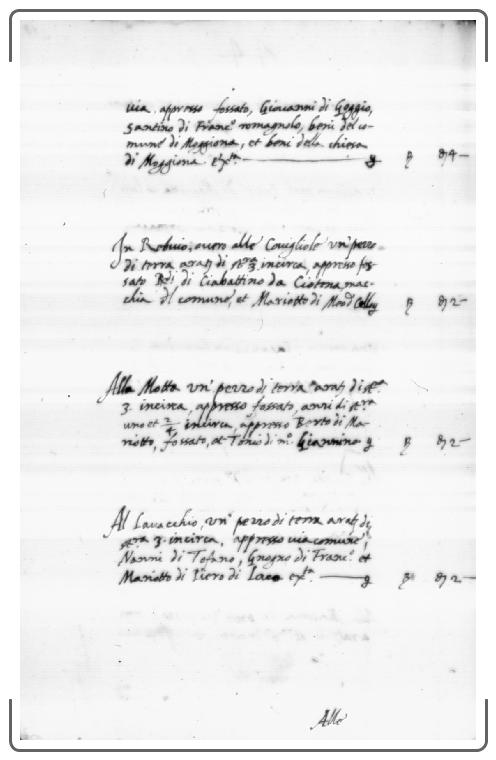 via appresso fossato, Giovanni di Goggio,
Santino di Franc.º romagnolo, beni del co-
mune di Moggiona, et beni della chiesa
di Moggiona etc.ra
In overo alle Conigliole un pezzo
di terra arat.a di st.ra 3. incirca, appresso fos-
sato di Ciabattino da Ciotena mac-
chia del comune, et Mariotto di
Alla Motta un pezzo di terra arat.a di st.ra
3. incirca, appresso fossato, anni di st.ra
uno et 2/4 incirca, appresso Berto di Ma-
riotto, fossato, et Tonio di m.º Giannino
Al Lavacchio, un pezzo di terra arat.a di
st.ra 3. incirca, appresso via comune,
Nanni di Tofano, Gnogno di Franc.º et
Mariotto di Piero di etc.ra
Alle